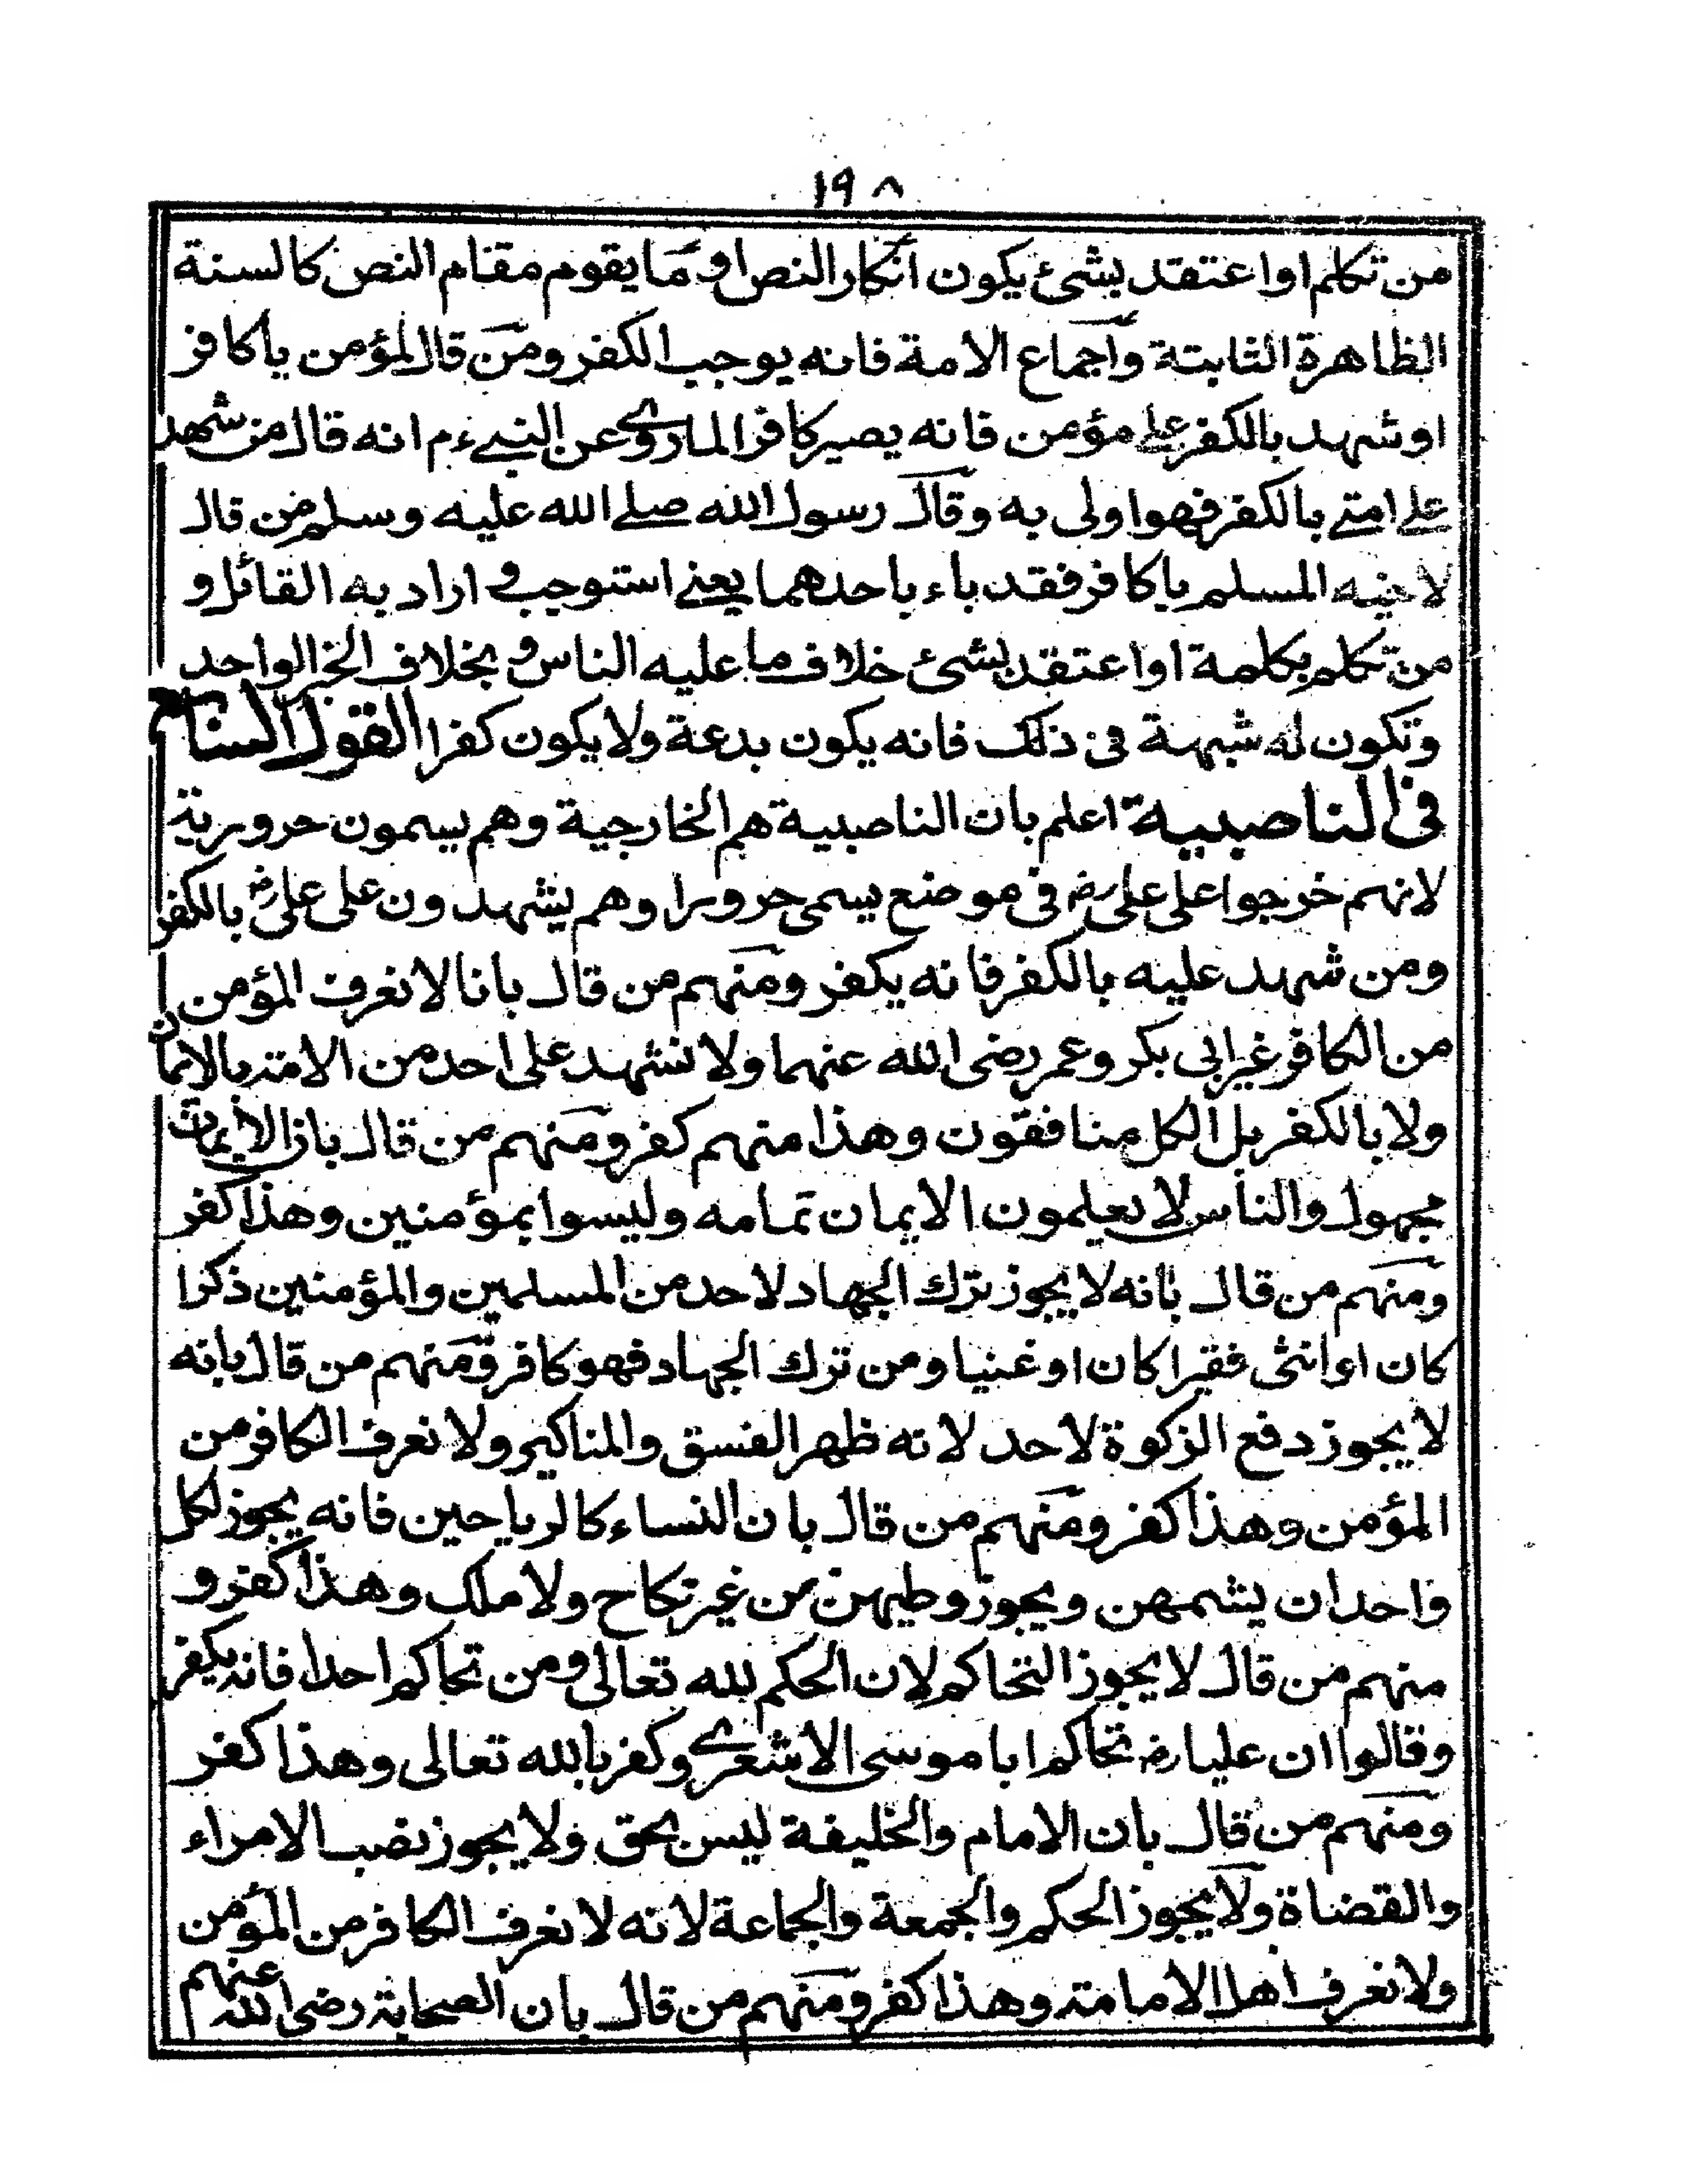 ١٩٨
من تكلم او اعتقد بشئ يكون انكار النص او ما يقوم مقام النص كالسنة
الظاهرة الثابتة واجماع الامة فانه يوجب الكفر ومن قال لمؤمن يا كافر
او شهد بالكفر على مؤمن فانه يصير كافرا لما روى عن النبى ءم انه قال من شهد
على امتى بالكفر فهو اولى به وقال رسول الله صلى الله عليه وسلم من قال
لاخيه المسلم يا كافر فقد باء باحدهما يعنى استوجب و اراد به القائل و
من تكلم بكلمة او اعتقد بشئ خلاف ما عليه الناس و بخلاف الخبر الواحد
وتكون له شبهة فى ذلك فانه يكون بدعة ولا يكون كفرا القول السابع
فى الناصبية اعلم بان الناصبية هم الخارجية وهم يسمون حرورية
لانهم خرجوا على على رض فى موضع يسمى حرورا وهم يشهدون على على رض بالكفر
ومن شهد عليه بالكفر فانه يكفر ومنهم من قال بانا لا نعرف المؤمن
من الكافر غير ابى بكر وعمر رضى الله عنهما ولا نشهد على احد من الامة بالايمان
ولا بالكفر بل الكل منافقون وهذا منهم كفر ومنهم من قال بان الايمان
مجهول والناس لا يعلمون الايمان تمامه وليسوا بمؤمنين وهذا كفر
ومنهم من قال بانه لا يجوز ترك الجهاد لاحد من المسلمين والمؤمنين ذكرا
كان او انثى فقيرا كان او غنيا ومن ترك الجهاد فهو كافر ومنهم من قال بانه
لا يجوز دفع الزكوة لاحد لانه ظهر الفسق والمناكير ولا نعرف الكافر من
المؤمن وهذا كفر ومنهم من قال بان النساء كالرياحين فانه يجوز لكل
واحد ان يشمهن ويجوز وطيهن من غير نكاح ولا ملك وهذا كفر و
منهم من قال لا يجوز التحاكم لان الحكم لله تعالى ومن تحاكم احدا فانه يكفر
وقالوا ان عليا رض تحاكم ابا موسى الاشعرى وكفر بالله تعالى وهذا كفر
ومنهم من قال بان الامام والخليفة ليس بحق ولا يجوز نصب الامراء
والقضاة ولا يجوز الحكم والجمعة والجماعة لانه لا نعرف الكافر من المؤمن
ولا نعرف اهل الامامة وهذا كفر ومنهم من قال بان الصحابة رضى الله عنهم